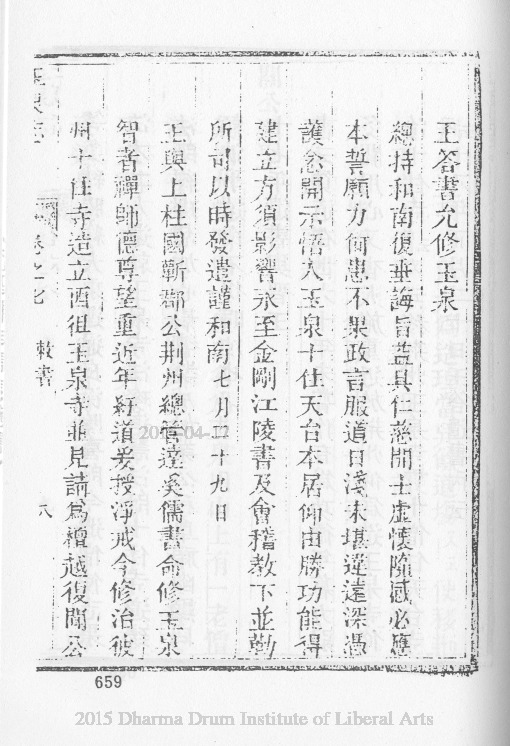 王答書允修玉泉
總持和南復垂誨旨益具仁慈開士虛懷隨感必應
本誓願力何患不果政言服道日淺未堪違遠深憑
護念開示悟入玉泉十住天台本居仰由勝功能得
建立方須影響永至金剛江陵書及會稽教下並勤
所司以時發遣謹和南七月二十九日
王與上柱國蘄郡公荊州總管達奚儒書命修玉泉
智者禪師德尊望重近年紆道爰授淨戒今修治彼
州十住寺造立酉徂玉泉寺並見請為檀越復聞公
玉泉志
卷之七
敕書
八
659
2015-04-17
2015 Dharma Drum Institute of Liberal Arts